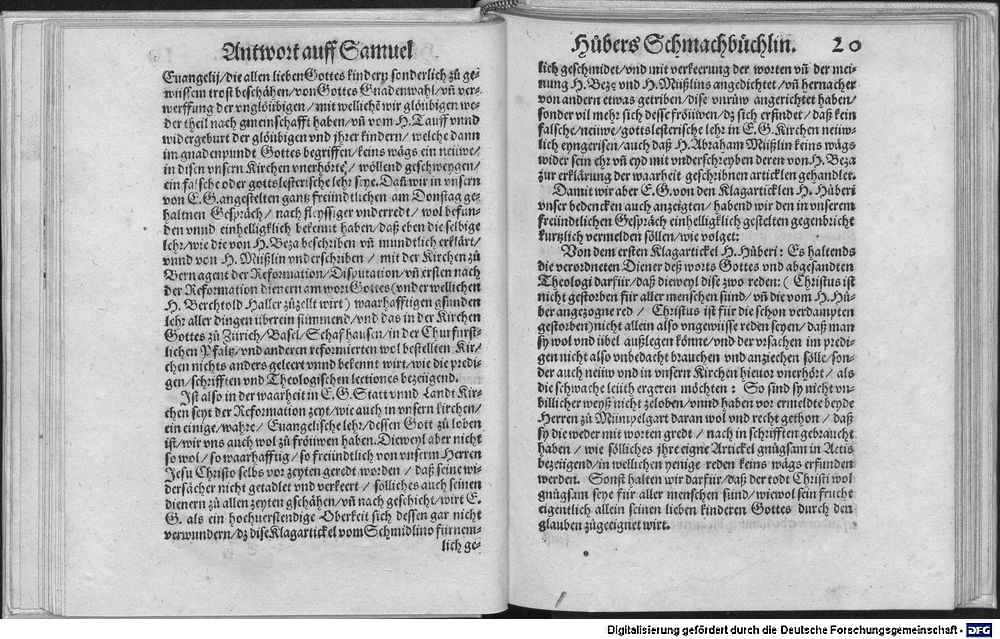 Antwort auff Samuel
Euangelij/die allen lieben Gottes kindern sonderlich zů ge-
wüssem trost beschähen/von Gottes Gnadenwahl/vñ ver-
werffung der vnglöubigen/mit wellichē wir glöubigen we-
der theil nach gmeinschafft haben/vñ vom H. Tauff vnnd
widergeburt der glöubigen vnd jhrer kindern/welche dann
im gnadenpundt Gottes begriffen/keins wägs ein neüwe/
in disen vnsern Kirchen vnerhörte/wöllend geschweygen/
ein falsche oder gottslesterische lehr seye. Dañ wir in vnsern
von E.G. angestelten gantz freündtlichen am Donstag ge-
haltnen Gespräch/nach flyssiger vnderredt/wol befun-
den vnnd einhelligklich bekennt haben/daß eben die selbige
lehr/wie die von H. Beza beschriben vñ mundtlich erklärt/
vnnd von H. Müßlin vnderschriben/mit der Kirchen zů
Bern agent der Reformation/Disputation/vñ ersten nach
der Reformation dienern am wort Gottes (vnder wellichen
H. Berchtold Haller zůzellt wirt) waarhafftigen gsunden
lehr aller dingen überein stimmend/vnd das in der Kirchen
Gottes zů Zürich/Basel/Schafhausen/in der Churfürst-
lichen Pfaltz/vnd anderen reformierten wol bestellten Kir-
chen nichts anders geleert vnnd bekennt wirt/wie die predi-
gen/schrifften vnd Theologischen lectiones bezeügend.
Ist also in der waarheit in E.G. Statt vnnd Landt Kir-
chen seyt der Reformation zeyt/wie auch in vnsern kirchen/
ein einige/wahre/Euangelische lehr/dessen Gott zů loben
ist/wir vns auch wol zů fröüwen haben. Dieweyl aber nicht
so wol/so waarhafftig/so freündtlich von vnserm Herren
Jesu Christo selbs vor zeyten geredt worden/daß seine wi-
dersächer nicht getadlet vnd verkeert/sölliches auch seinen
dienern zů allen zeyten gschähen/vñ nach geschicht/wirt E.
G. als ein hochuerstendige Oberkeit sich dessen gar nicht
verwundern/dz dise Klagartickel vom Schmidlino fürnem-
lich ge-
Hůbers Schmachbüchlin. 20
lich geschmidet/vnd mit verkeerung der worten vñ der mei-
nung H. Bezę vnd H. Müßlins angedichtet/vñ hernacher
von andern etwas getriben/dise vnrůw angerichtet haben/
sonder vil mehr sich desse fröüwen/dz sich erfindet/daß kein
falsche/neüwe/gottslesterische lehr in E.G. Kirchen neüw-
lich eyngerisen/auch daß H. Abraham Müßlin keins wägs
wider sein ehr vñ eyd mit vnderschreyben deren von H. Beza
zur erklärung der waarheit geschribnen articklen gehandlet.
Damit wir aber E.G. von den Klagarticklen H. Hůberi
vnser bedencken auch anzeigten/habend wir den in vnserem
freündtlichen Gespräch einhelligklich gestelten gegenbricht
kurtzlich vermelden söllen/wie volget:
Von dem ersten Klagartickel H. Hůberi: Es haltends
die verordneten Diener deß worts Gottes vnd abgesandten
Theologi darfür/daß dieweyl dise zwo reden: (Christus ist
nicht gestorben für aller menschen sünd/vñ die vom H. Hů-
ber angezogne red/Christus ist für die schon verdampten
gestorben) nicht allein also vngewüsse reden seyen/daß man
sy wol vnd übel außlegen könte/vnd der vrsachen im predi-
gen nicht also vnbedacht brauchen vnd anziechen sölle/son-
der auch neüw vnd in vnsern Kirchen hieuor vnerhört/als
die schwache leüth ergeren möchten: So sind sy nicht vn-
billicher weyß nicht zeloben/vnnd haben vor ermeldte beyde
Herren zů Mümpelgart daran wol vnd recht gethon/daß
sy die weder mit worten gredt/nach in schrifften gebraucht
haben/wie sölliches jhre eigne Artickel gnůgsam in Actis
bezeügend/in wellichen yenige reden keins wägs erfunden
werden. Sonst halten wir darfür/daß der todt Christi wol
gnůgsam seye für aller menschen sünd/wiewol sein frucht
eigentlich allein seinen lieben kinderen Gottes durch den
glauben zůgeeignet wirt.
Digitalisierung gefördert durch die Deutsche Forschungsgemeinschaft - DFG